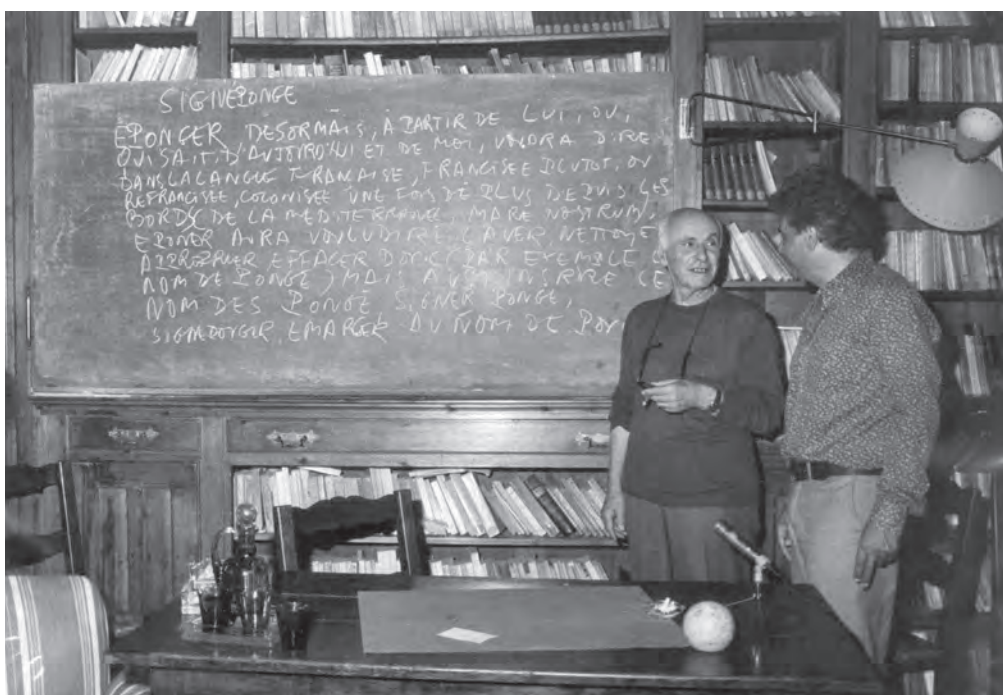 SIGNÉPONGE
ÉPONGER DESORMAIS, À PARTIR DE LUI, OU,
QUI SAIT, D'AUJOURD'HUI ET DE MOI, VOUDRA DIRE
DANS LA LANGUE FRANCAISE, FRANCISEE PLUTOT, OU
REFRANCISEE, COLONISEE UNE FOIS DE PLUS DEPUIS LES
BORDS DE LA MEDITERRANEE MARE NOSTRUM,
EPONGER AURA VOULU DIRE LAVER, NETTOYE
APPROPRIER EFFACER DONC (PAR EXEMPLE LE
NOM DE PONGE) MAIS AUSSI INSCRIRE LE
NOM DES PONGE SIGNER PONGE,
SIGNEPONGER, EMARGER AU NOM DE PON